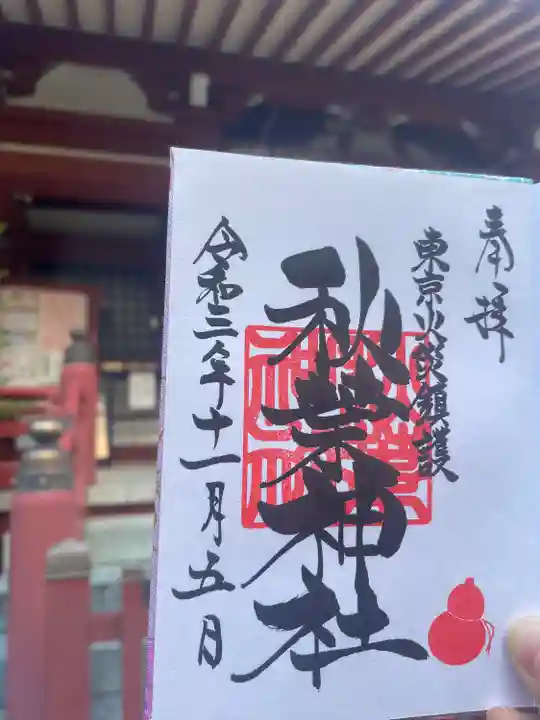 奉拝
東京火災鎮護
秋葉神社
令和三年十一月五日